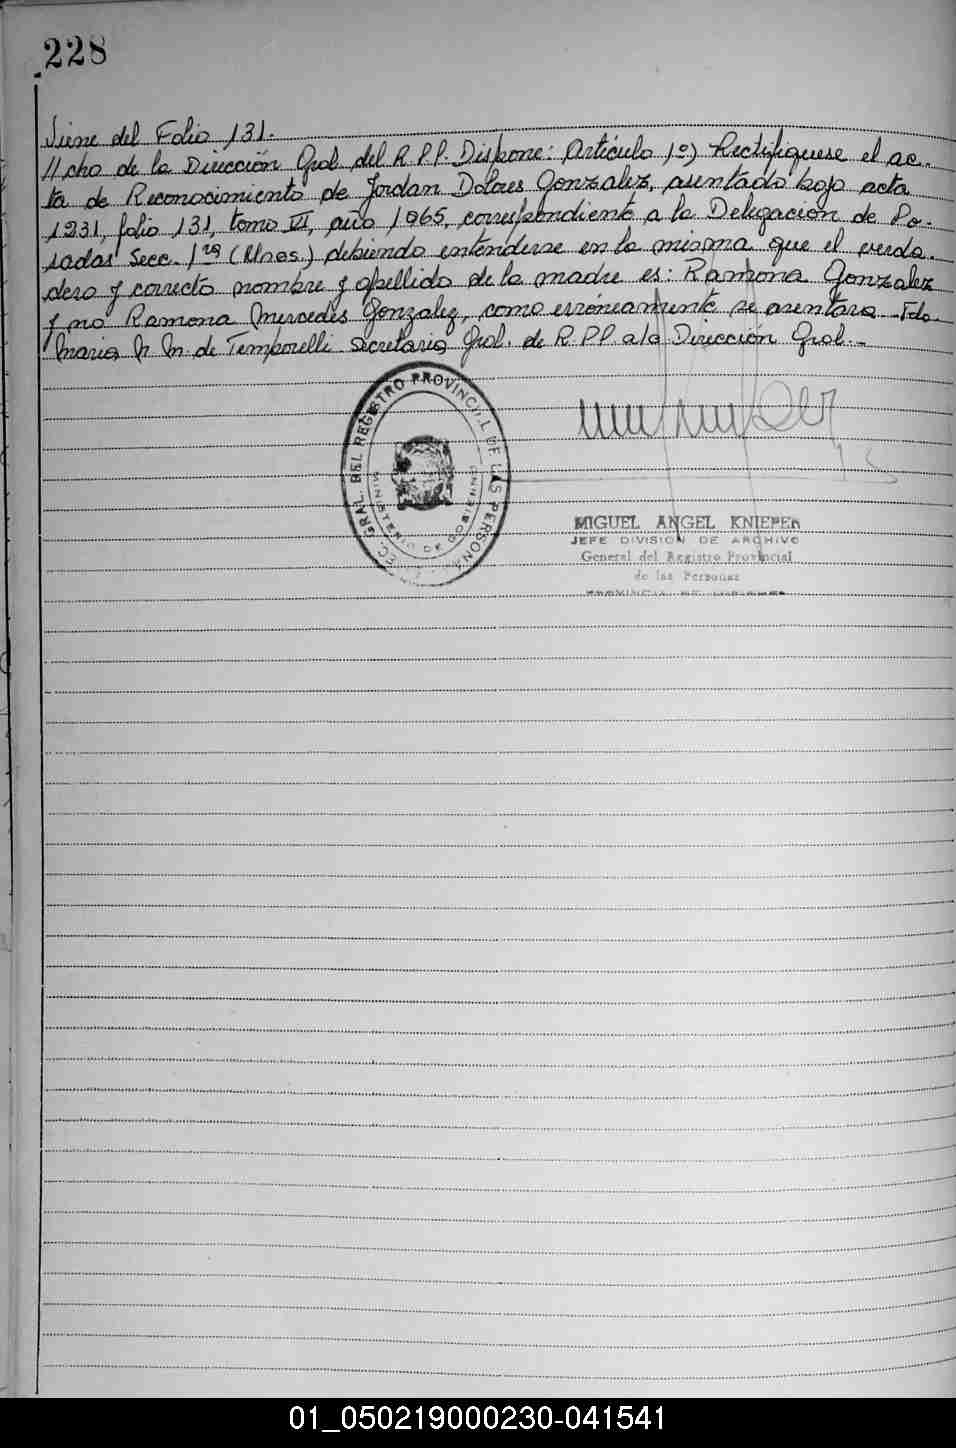 228
Viene del Folio 131.
//cho de la Dirección Gral del R.P.P. Dispone: Artículo 1º) Rectifíquese el ac-
ta de Reconocimiento de Jordan Dolores Gonzalez, asentado bajo acta
1231, folio 131, tomo VI, año 1965, correspondiente a la Delegación de Po-
sadas Secc. 1ra (Mnes.) debiendo entenderse en la misma que el verda-
dero y correcto nombre y apellido de la madre es: Ramona Gonzalez
y no Ramona Mercedes Gonzalez, como erróneamente se asentara. Fdo.
Maria N. M. de Temporelli Secretaria Gral. de R.P.P. a/c Dirección Gral.-
GRAL. DEL REGISTRO PROVINCIAL DE LAS PERSONAS
MINISTERIO DE GOBIERNO
MIGUEL ANGEL KNIEPER
JEFE DIVISION DE ARCHIVO
General del Registro Provincial
de las Personas
PROVINCIA DE MISIONES
01_050219000230-041541